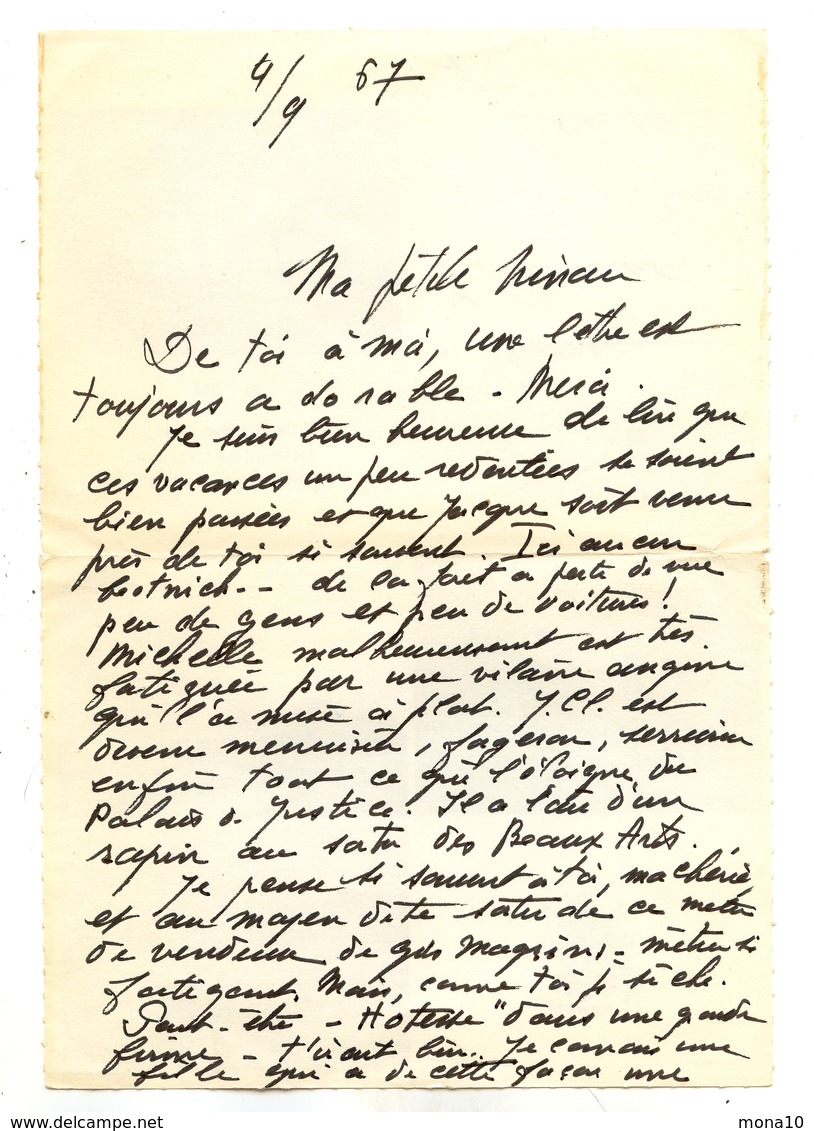 4/9 67
Ma petite
De toi à moi, une lettre est
toujours adorable - Merci.
Je suis bien heureuse de lire que
ces vacances un peu redoutées se soient
bien passées et que Jacque soit venu
près de toi si souvent. Ici aucun
beatnick -- de la forêt a perte de vue
peu de gens et peu de voitures!
Michelle malheureusement est très
fatiguée par une vilaine angine
qui l'a mise à plat. J. Cl. est
devenu menuisier, serrurier
enfin tout ce qui l'éloigne du
Palais de Justice. Il a l'air d'un
rapin au sortir des Beaux Arts.
Je pense si souvent à toi, ma chérie,
et au moyen de te sortir de ce métier
de vendeuse de gds magasins - métier si
fatigant. Mais, comme toi je sèche.
Peut-être - Hotesse" dans une grande
firme - t'irait bien.. Je connais une
fille qui a de cette façon une
www.delcampe.net
mona10